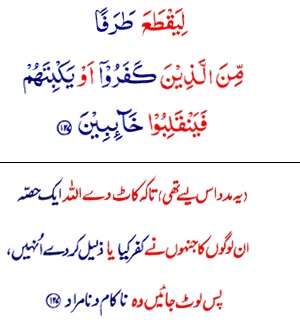 لِيَقْطَعَ طَرَفًا
مِّنَ الَّذِيْنَ كَفَرُوْٓا اَوْ يَكْبِتَهُمْ
فَيَنْقَلِبُوْا خَآىِٕبِيْنَ ﴿۱۲۷﴾
(یہ مدد اس لیے تھی) تاکہ کاٹ دے اللہ ایک حصّہ
ان لوگوں کا جنہوں نے کفر کیا یا ذلیل کر دے اُنہیں،
پس لوٹ جائیں وہ ناکام و نامراد ﴿۱۲۷﴾